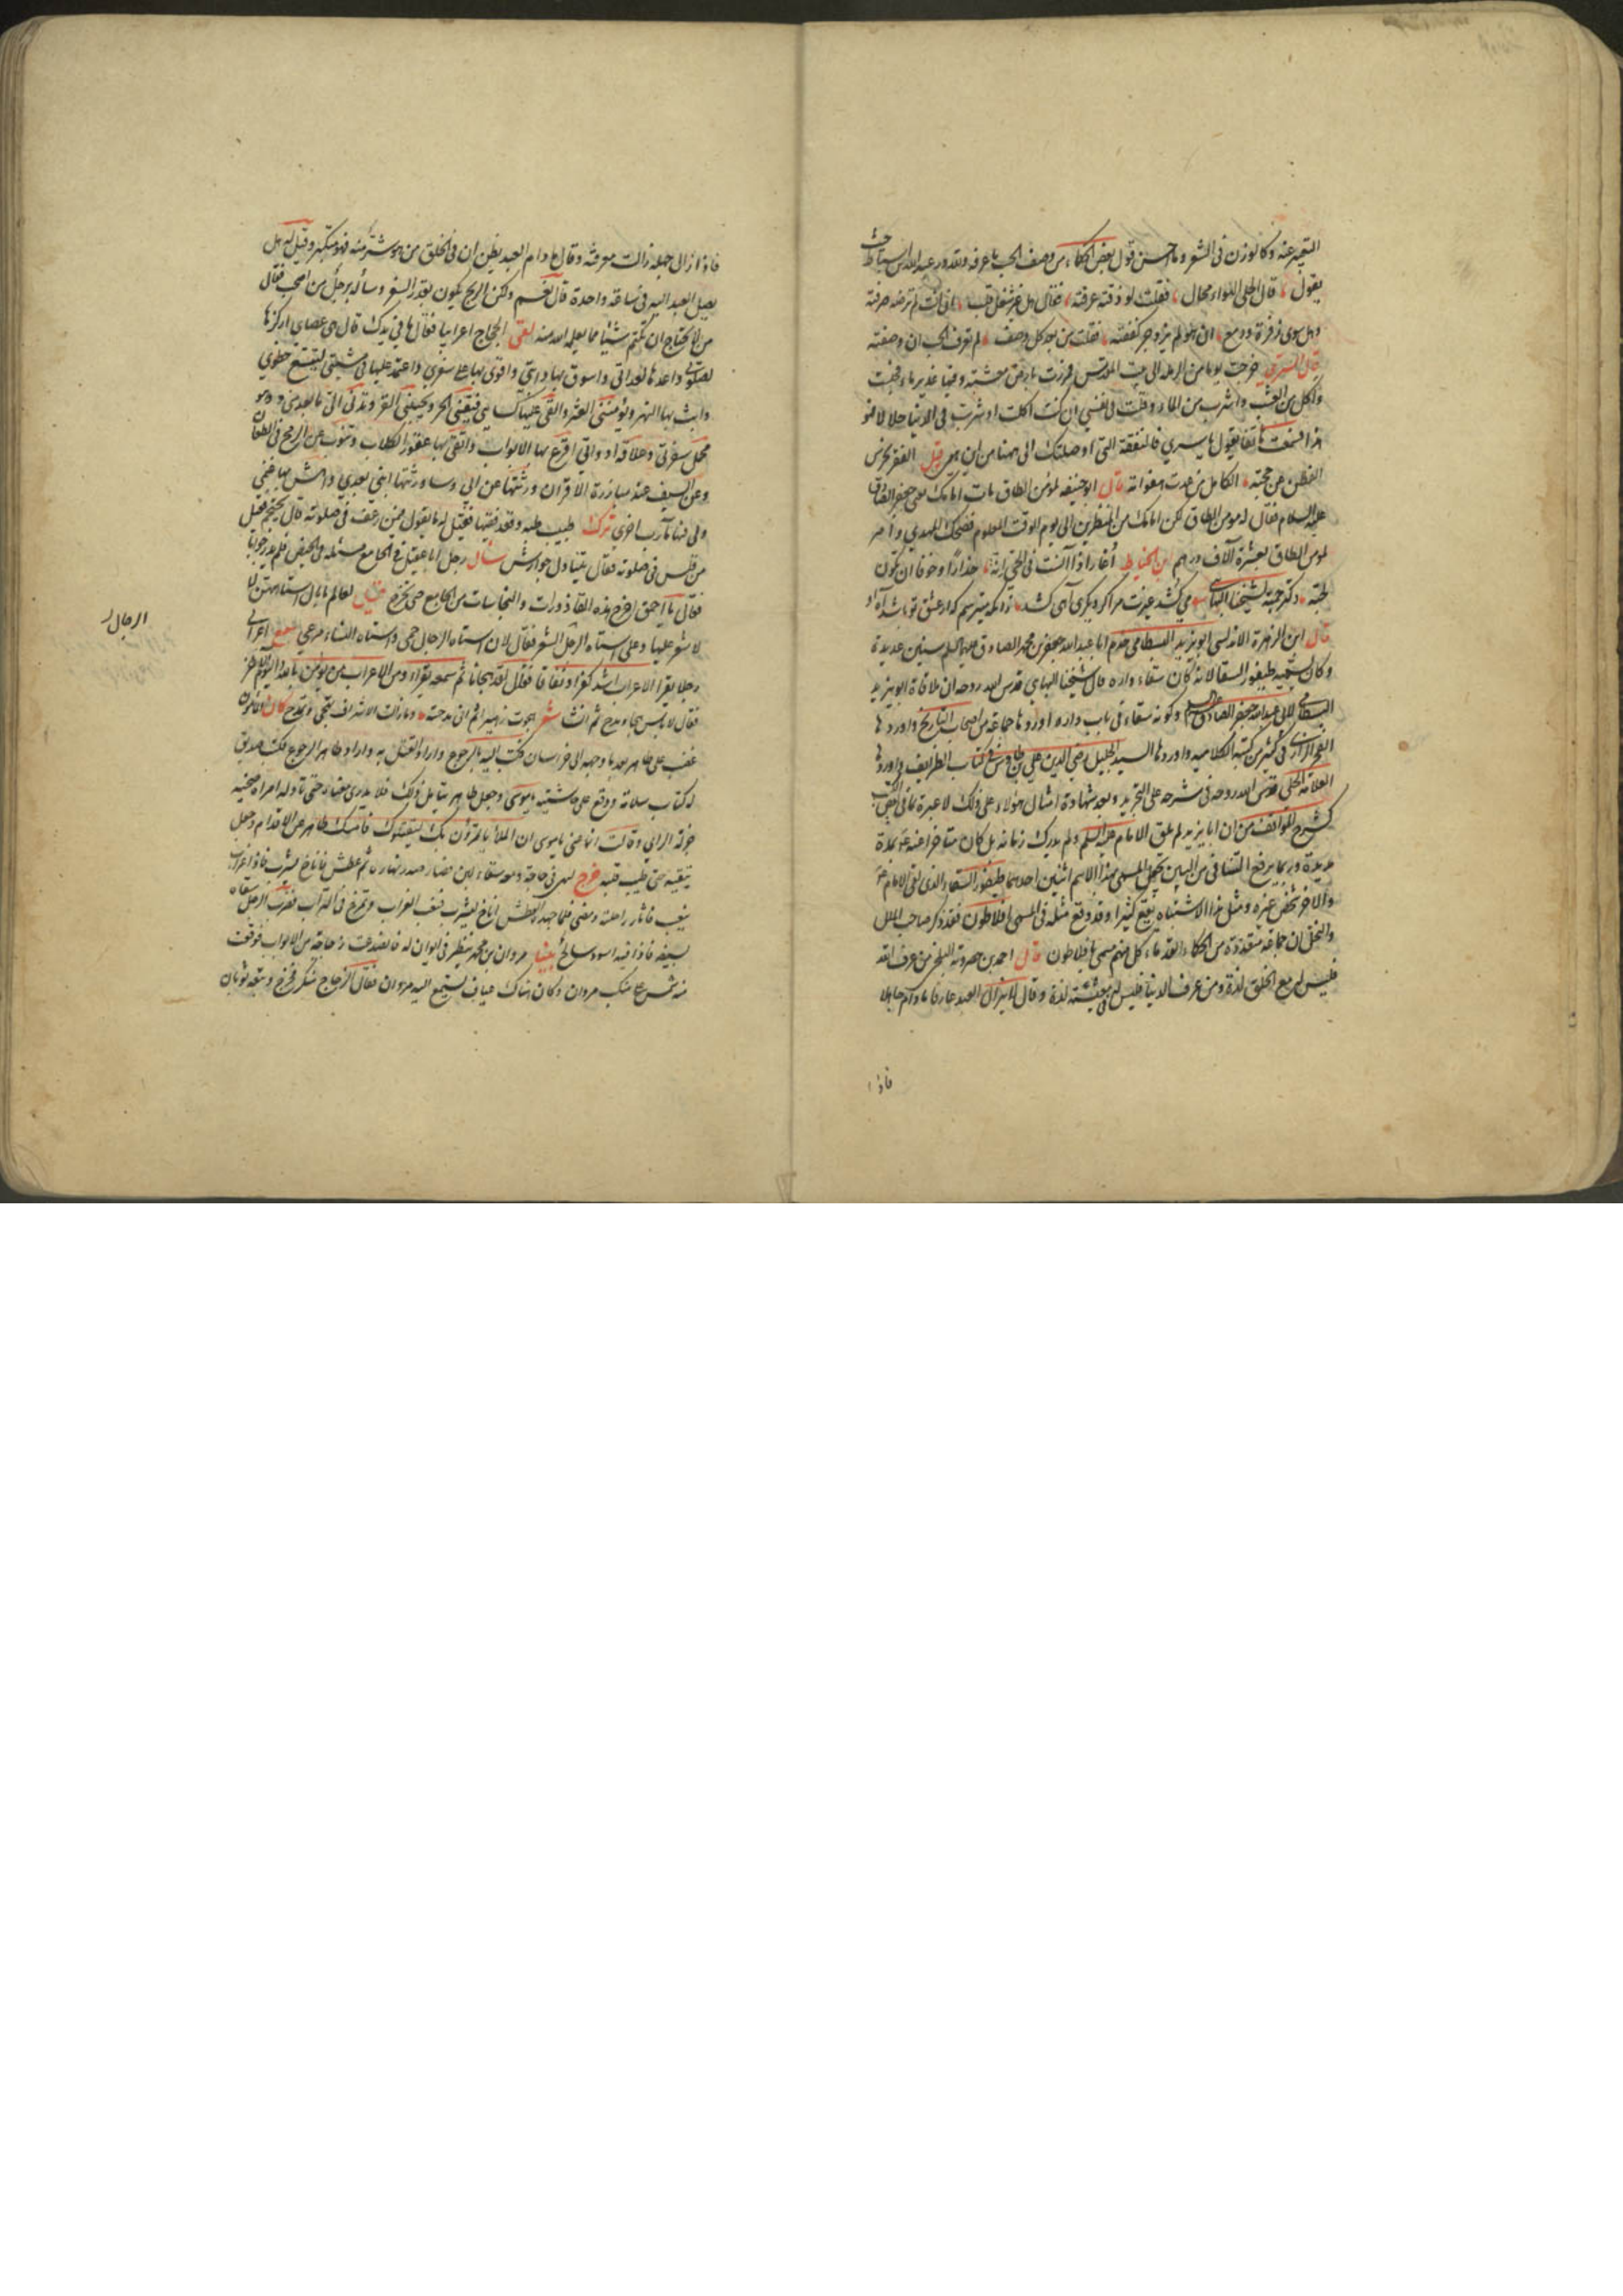 التعبير عنه وكالوزن في الشعر وما احسن قول بعض الحكماء من وصف الحب ما عرفه ولله در عبد الله بن اسباط حيث
يقول قال الخلي الهوى محال فقلت لو ذقته عرفته فقال هل غير شغل قلب ان انت لم ترضه صرفته
وهل سوى زفرة ودمع ان هو لم يزدجر كففته فقلت من بعد كل وصف لم تعرف الحب ان وصفته
قال السري خرجت يوما من الرملة الى بيت المقدس فمررت بارض معشبة وفيها غدير ماء فجلست
واكل من العشب واشرب من الماء وقلت في نفسي ان كنت اكلت او شربت في الدنيا حلالا فهو
هذا فسمعت هاتفا يقول يا سري فالنفقة التي اوصلتك الى ههنا من اين هي قيل الفقر يخرس
الفطن عن حجته الكامل من عدت هفواته قال ابو حنيفه لمؤمن الطاق مات امامك يعني جعفر الصادق
عليه السلام فقال له مومن الطاق لكن امامك من المنظرين الى يوم الوقت المعلوم فضحك المهدي وامر
لمومن الطاق بعشرة آلاف درهم ابن الخياط أغار اذا آنست في الحي انة حذارا وخوفا ان تكون
لحبه وكترجمة لشيخنا البهائي مي كشد غيرت مرا گر ديگرى آهى كشد زانكه ميترسم كه از عشق تو باشد آه او
قال ابن الزهرة الاندلسي ابو يزيد البسطامي خدم ابا عبد الله جعفر بن محمد الصادق عليه السلم سنين عديدة
وكان يسميه طيفور السقا لانه كان سقاء داره قال شيخنا البهائي قدس الله روحه ان ملاقاة ابو يزيد
البسطامي للامام ابي عبد الله جعفر الصادق عليه السلم وكونه سقاء في باب داره اوردها جماعة من اصحاب التاريخ واوردها
الفخر الرازي في كثير من كتبه الكلاميه واوردها السيد الجليل رضي الدين علي بن طاوس في كتاب الطرايف واوردها
العلامة الحلي قدس الله روحه في شرحه على التجريد وبعد شهادة امثال هؤلاء على ذلك لا عبرة بما في بعض الكتب
كشرح المواقف من ان ابا يزيد لم يلق الامام عليه السلم ولم يدرك زمانه بل كان متاخرا عنه بمدة
مديدة وربما يرفع التنافي من البين بجعل المسمى بهذا الاسم اثنين احدهما طيفور السقاء الذي لقي الامام
والآخر شخص غيره ومثل هذا الاشتباه يقع كثيرا وقد وقع مثله في المسمى افلاطون فقد ذكر صاحب الملل
والنحل ان جماعة متعددة من الحكماء القدماء كل منهم سمى بافلاطون قال احمد بن حضرويه البلخي من عرف الله
فليس له مع الخلق لذة ومن عرف الدنيا فليس له في معيشته لذة وقال لا يزال العبد عارفا مادام جاهلا
فاذا
فاذا زال جهله زالت معرفته وقال مادام العبد يظن ان في الخلق من هو شر منه فهو متكبر وقيل له هل
يصل العبد اليه في ساعة واحدة قال نعم ولكن الربح يكون بقدر السفر وساله رجل من اصحب فقال
من لا تحتاج ان تكتم شيئا مما يعلمه الله منه لقي الحجاج اعرابيا فقال ما في يدك قال هي عصاي اركزها
لصلوتي واعدها لعداتي واسوق بها دابتي واقوى بها على سفري واعتمد عليها في مشيتي ليتسع خطوي
واثب بها النهر وتؤمنني العثر والقي عليها كساي فيقيني الحر ويجنبني القر وتدني الي ما بعد مني وهو
محمل سفرتي وعلاقة ادواتي اقرع بها الابواب واتقي بها عقور الكلاب وتنوب عن الرمح في الطعان
وعن السيف عند مبارزة الاقران ورثتها عن ابي وساورثها ابني بعدي واهش بها على غنمي
ولي فيها مآرب اخرى ترك طبيب طبه وقعد فقيها فقيل له ما يقول فيمن رعف في صلوته قال يحتجم فقيل
من قلس في صلوته فقال يتناول جوارش سال رجل ابا عقيل في الجامع مسئلة في الحيض فلم يدر جوابها
فقال يا احمق اخرج هذه القاذورات والنجاسات من الجامع حتى تخرج قيل لعالم ما بال استاههن لا
لا شعر عليها وعلى استاه الرجل الشعر فقال لان استاه الرجال حمى واستاه النساء مرعى سمع اعرابي
الرجال
رجلا يقرا الاعراب اشد كفرا ونفاقا فقال لقد هجانا ثم سمعه يقراء ومن الاعراب من يؤمن بالله واليوم الآخر
فقال لا باس هجا ومدح ثم انشد شعر هجوت زهيرا ثم اني مدحته وما زالت الاشراف تهجى وتمدح كان المأمون
غضب على طاهر بعد ما وجهه الى خراسان فكتب اليه بالرجوع واراد القتل به واراد طاهر الرجوع فكتب صديق
له كتاب سلامة ووقع على حاشيته يا موسى وجعل طاهر يتامل ذلك فلا يدري معناه حتى ناوله امراة صحيحة
جزلة الراي وقالت انما عنى يا موسى ان الملأ ياتمرون بك ليقتلوك فامسك طاهر عن الاقدام وجعل
يتقيه حتى طيب قلبه خرج لص في حاجة ومعه سقاء لبن فسار صدر نهاره ثم عطش فاناخ ليشرب فاذا غراب
ينعب فاثار راحلته ومضى فلما جهده العطش اناخ ليشرب فنعب الغراب وتمرغ في التراب فضرب الرجل سقاه
بسيفه فاذا فيه اسود سالخ بينا مروان بن محمد ينظر في ايوان له فانصدعت زجاجة من الابواب فوقعت
منه شمس على منكب مروان وكان هناك عياف يستمع اليه مروان فقال الزجاج منكر فخرج وتبعه ثوبان